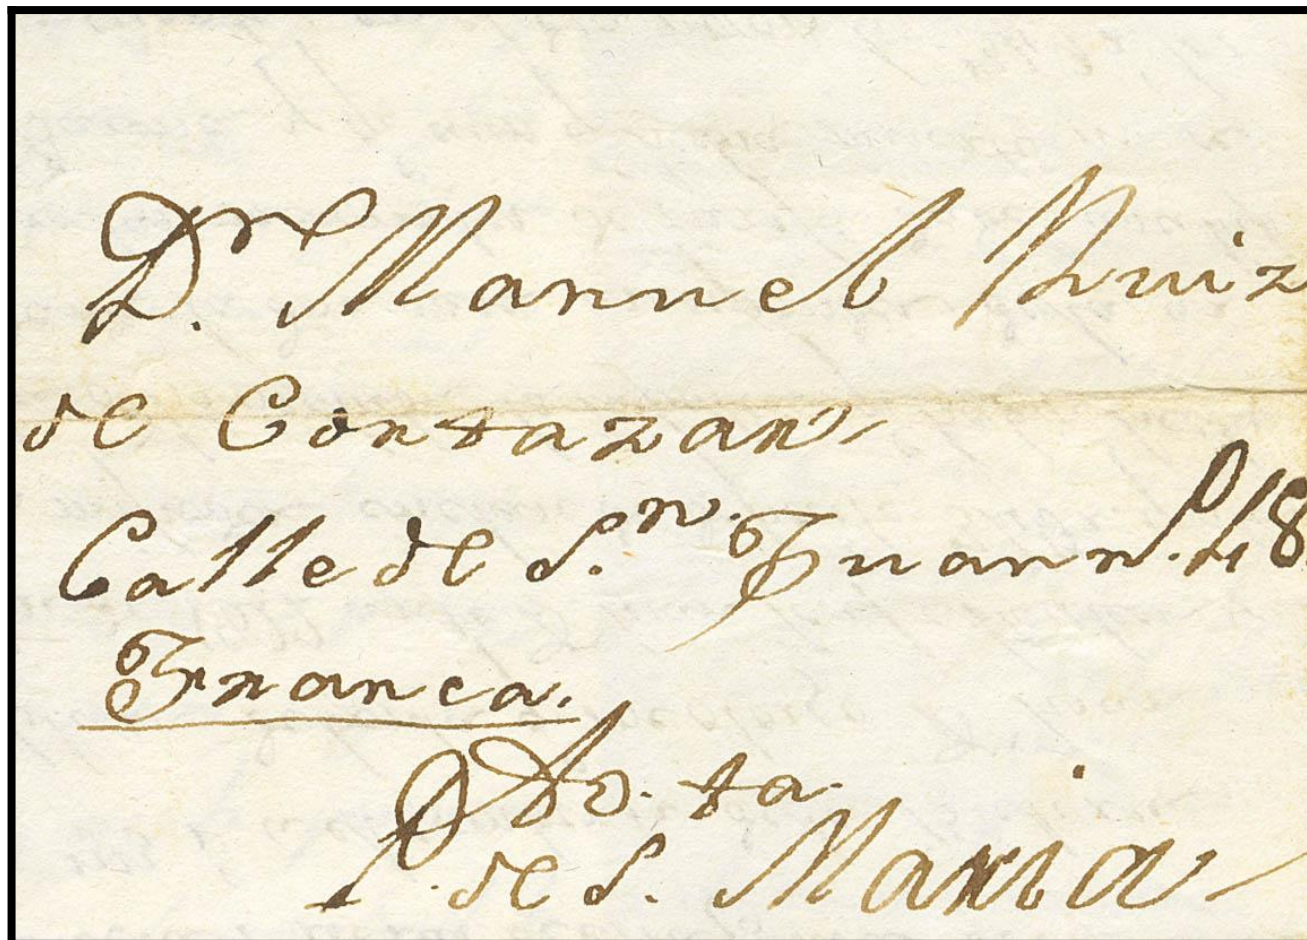 Dn. Manuel Ruiz
de Cortazar
Calle de Sn. Juan n.o 48.
Franca.
Pto. de Sta. Maria